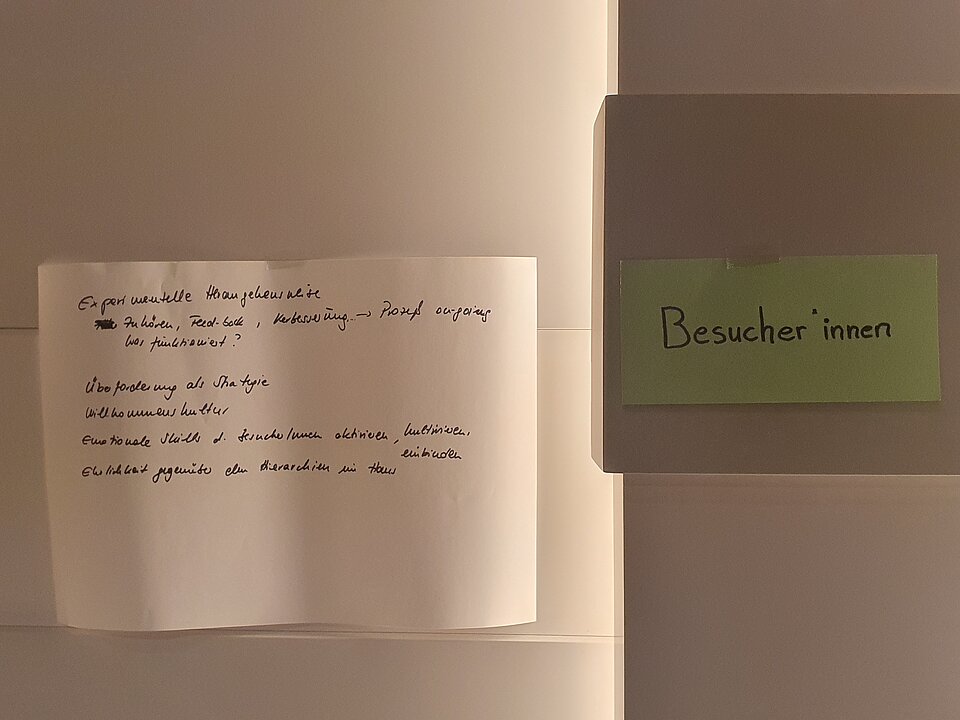 Experimentelle Herangehensweise
Zuhören, Feed-back, Verbesserung..→ Prozeß on-going
Was funktioniert?
Überforderung als Strategie
Willkommenskultur
Emotionale Skills d. BesucherInnen aktivieren, kultivieren,
einbinden
Ehrlichkeit gegenüber den Hierarchien im Haus
Besucher*innen